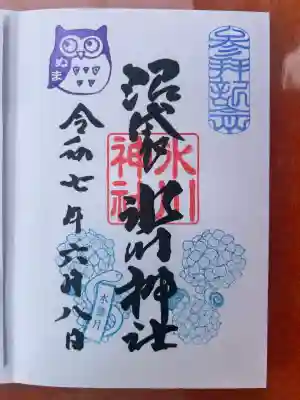 沼袋氷川神社
氷川神社
令和七年六月八日
ぬま
水無月